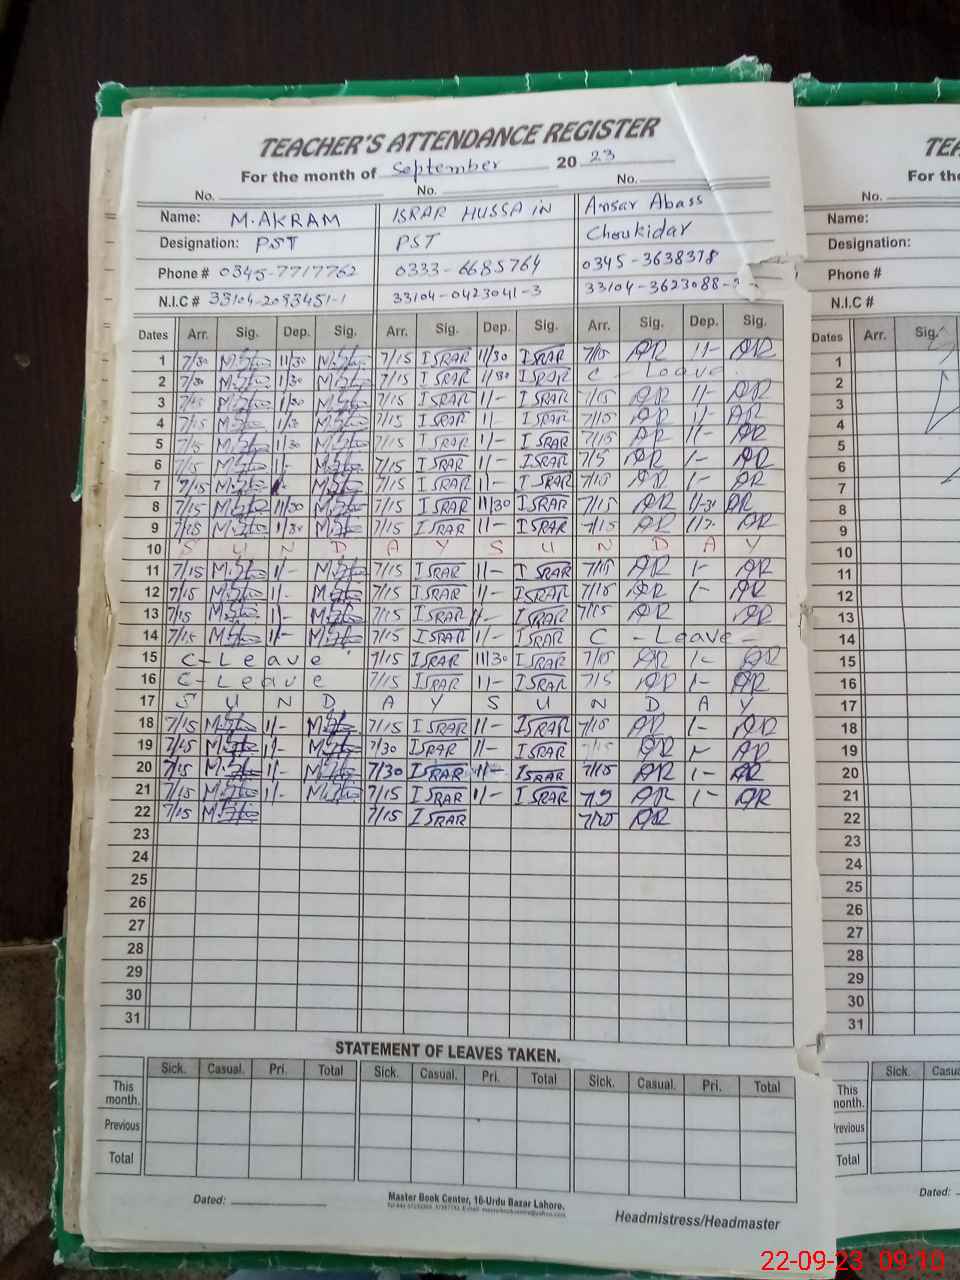 TEACHER'S ATTENDANCE REGISTER
For the month of September 2023
No. No. No.
Name: M.AKRAM ISRAR HUSSAIN Ansar Abass
Designation: PST PST Choukidar
Phone # 0345-7717762 0333-6685764 0345-3638378
N.I.C # 33104-2093451-1 33104-0423041-3 33104-3623088-
Dates Arr. Sig. Dep. Sig. Arr. Sig. Dep. Sig. Arr. Sig. Dep. Sig.
1 7/30 11/30 7/15 ISRAR 11/30 ISRAR 7/15 AR 11- AR
2 7/30 1/30 7/15 ISRAR 11/30 ISRAR C - Leave
3 7/15 1/30 7/15 ISRAR 11/- ISRAR 7/15 AR 1/- AR
4 7/15 7/15 ISRAR 11- ISRAR 7/15 AR 1/- AR
5 7/15 1/30 7/15 ISRAR 1/- ISRAR 7/15 AR 11- AR
6 7/15 1/- 7/15 ISRAR 11/- ISRAR 7/5 AR 1- AR
7 7/15 7/15 ISRAR 11/- ISRAR 7/15 AR 1- AR
8 7/15 11/30 7/15 ISRAR 11/30 ISRAR 7/15 AR AR
9 7/15 1/30 7/15 ISRAR 11- ISRAR 7/15 AR AR
10 S U N D A Y S U N D A Y
11 7/15 1/- 7/15 ISRAR 11- ISRAR 7/15 AR 1- AR
12 7/15 1/- 7/15 ISRAR 11/- ISRAR 7/15 AR 1- AR
13 7/15 1/- 7/15 ISRAR ISRAR 7/15 AR AR
14 7/15 11/- 7/15 ISRAR 11/- ISRAR C - Leave -
15 C - Leave 7/15 ISRAR 11/30 ISRAR 7/15 AR 1- AR
16 C - Leave 7/15 ISRAR 11- ISRAR 7/5 AR 1- AR
17 S U N D A Y S U N D A Y
18 7/15 1/- 7/15 ISRAR 11/- ISRAR 7/15 AR 1- AR
19 7/15 1/- 7/30 ISRAR 11/- ISRAR AR AR
20 7/15 1/- 7/30 ISRAR 11/- ISRAR 7/15 AR 1- AR
21 7/15 1/- 7/15 ISRAR 11/- ISRAR AR 1- AR
22 7/15 7/15 ISRAR AR
23
24
25
26
27
28
29
30
31
STATEMENT OF LEAVES TAKEN.
Sick. Casual. Pri. Total Sick. Casual. Pri. Total Sick. Casual. Pri. Total
This month.
Previous
Total
Dated:
Master Book Center, 16-Urdu Bazar Lahore.
Headmistress/Headmaster
TEA
For the
No.
Name:
Designation:
Phone #
N.I.C #
Dates Arr. Sig.
1
2
3
4
5
6
7
8
9
10
11
12
13
14
15
16
17
18
19
20
21
22
23
24
25
26
27
28
29
30
31
Sick. Casu
This month.
Previous
Total
Dated:
22-09-23 09:10